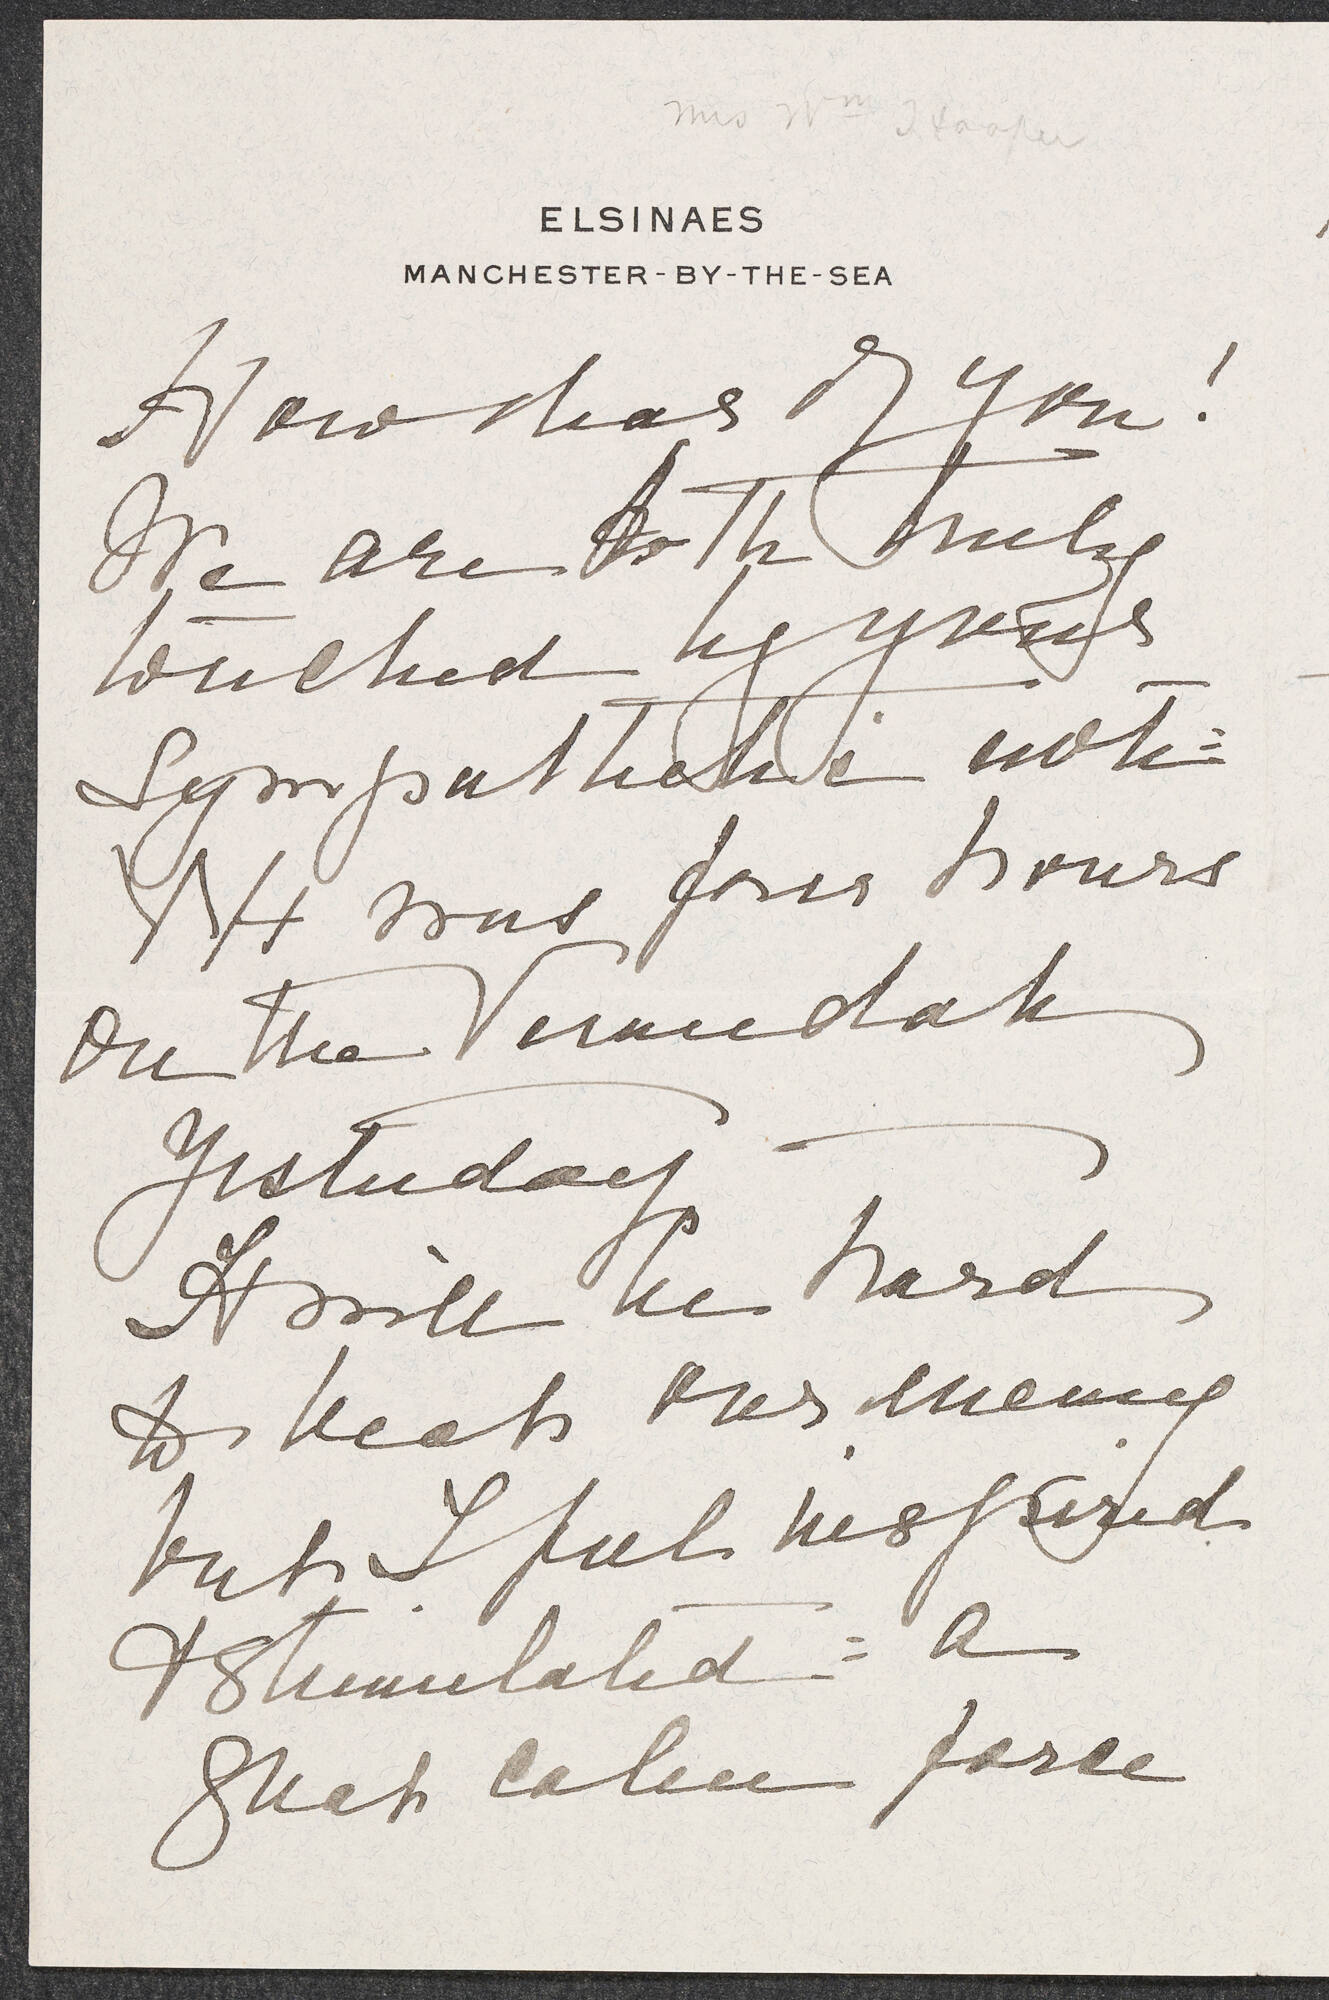 Mrs Wm Hooper
ELSINAES
MANCHESTER-BY-THE-SEA
How dear of you!
We are both truly
touched by your
sympathetic note=
WH was four hours
on the Verandah
Yesterday —
It will be hard
to beat our enemy
but I feel inspired
& stimulated = a
great calm force